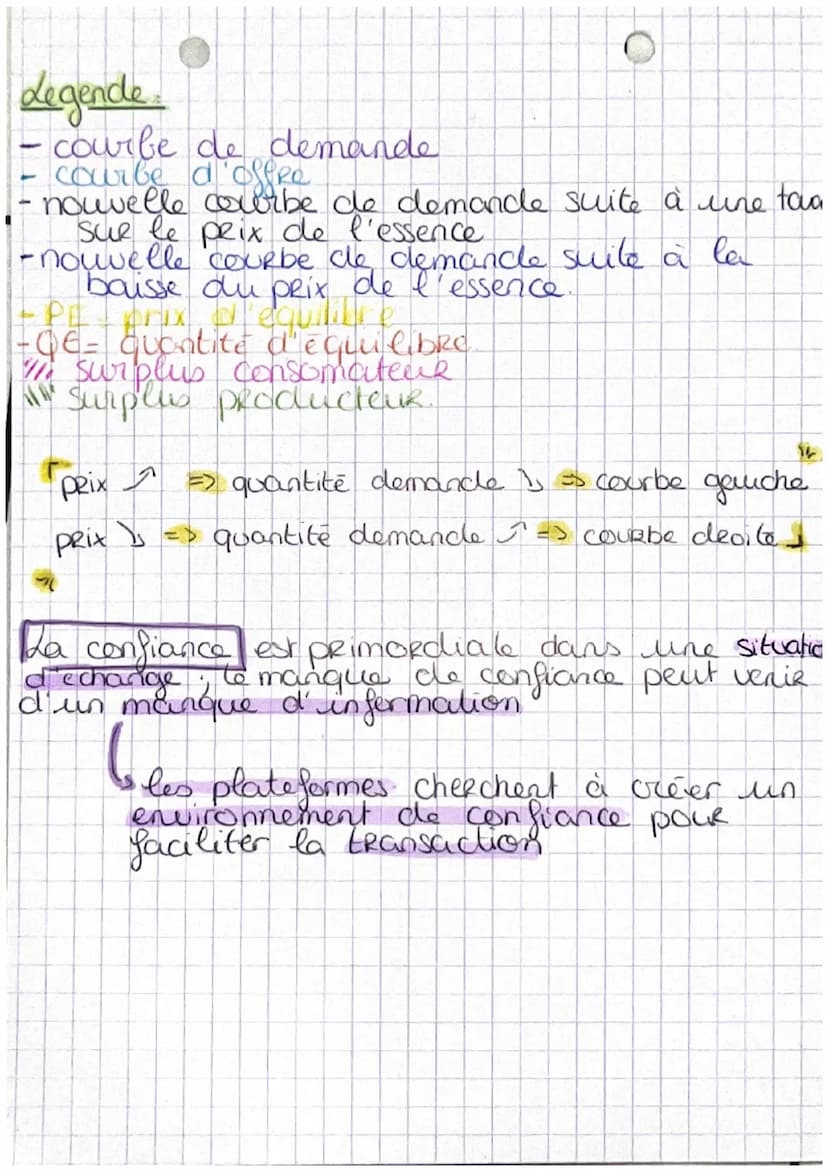 Legende:
- courbe de demande
- courbe d'offre
- nouvelle courbe de demande suite à une
sur le prix de l'essence
- nouvelle courbe de demande suite à la
baisse du prix de l'essence.
- PE = prix d'equilibre
- QE = quantité d'équilibre
surplus consomateur
surplus producteur.
prix ↗ => quantité demande ↘ => courbe gauche
prix ↘ => quantité demande ↗ => courbe droite
La confiance est primordiale dans une situatio
d'echange ; le manque de confiance peut venir
d'un manque d'information
↳ les plateformes cherchent à créer un
environnement de confiance pour
faciliter la transaction